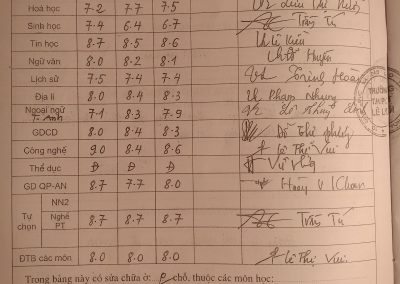 Hoá học 7.2 7.7 7.5
Sinh học 7.4 6.4 6.7 Trần Tú
Tin học 8.7 8.5 8.6
Ngữ văn 8.0 8.2 8.1 Huyền
Lịch sử 7.5 7.4 7.4
Địa lí 8.0 8.4 8.3 Phạm Nhung
Ngoại ngữ T. Anh 7.1 8.3 7.9
GDCD 8.0 8.4 8.3
Công nghệ 9.0 8.4 8.6 Lê Thị Vui
Thể dục Đ Đ Đ
GD QP-AN 8.7 7.7 8.0
Tự chọn NN2
Nghề PT 8.7 8.7 8.7 Trần Tú
ĐTB các môn 8.0 8.0 8.0 Lê Thị Vui
Trong bảng này có sửa chữa ở: chỗ, thuộc các môn học: